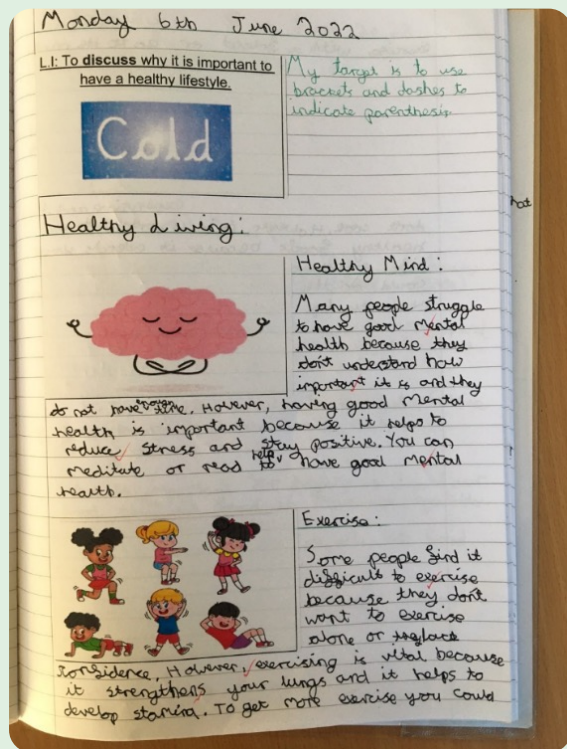 Monday 6th June 2022
L.I: To discuss why it is important to
have a healthy lifestyle.
Cold
My target is to use
brackets and dashes to
indicate parenthesis
Healthy Living:
Healthy Mind:
Many people struggle
to have good mental
health because they
don't understand how
important it is and they
do not have time. However, having good mental
health is important because it helps to
reduce stress and stay positive. You can
meditate or read to help have good mental
health.
Exercise:
Some people find it
difficult to exercise
because they don't
want to exercise
alone or lack
confidence. However, exercising is vital because
it strengthens your lungs and it helps to
develop stamina. To get more exercise you could